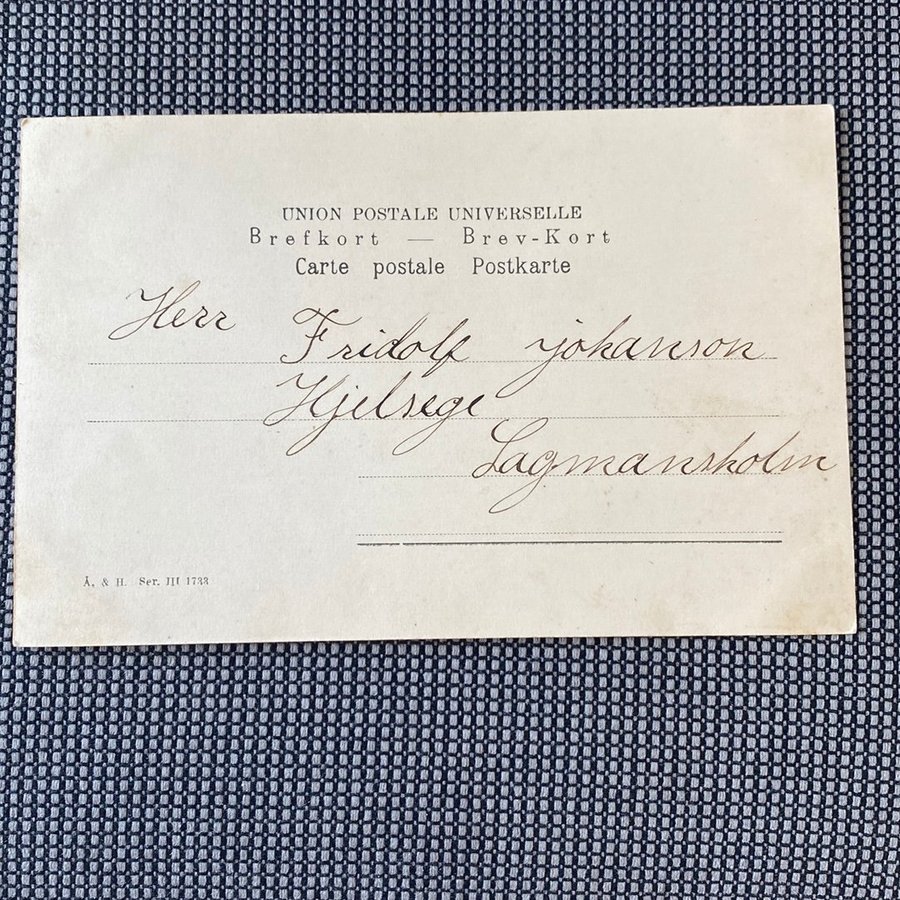 UNION POSTALE UNIVERSELLE
Brefkort — Brev-Kort
Carte postale Postkarte
Herr Fridolf johanson
Hjelsege
Lagmansholm
Å. & H. Ser. III 1733